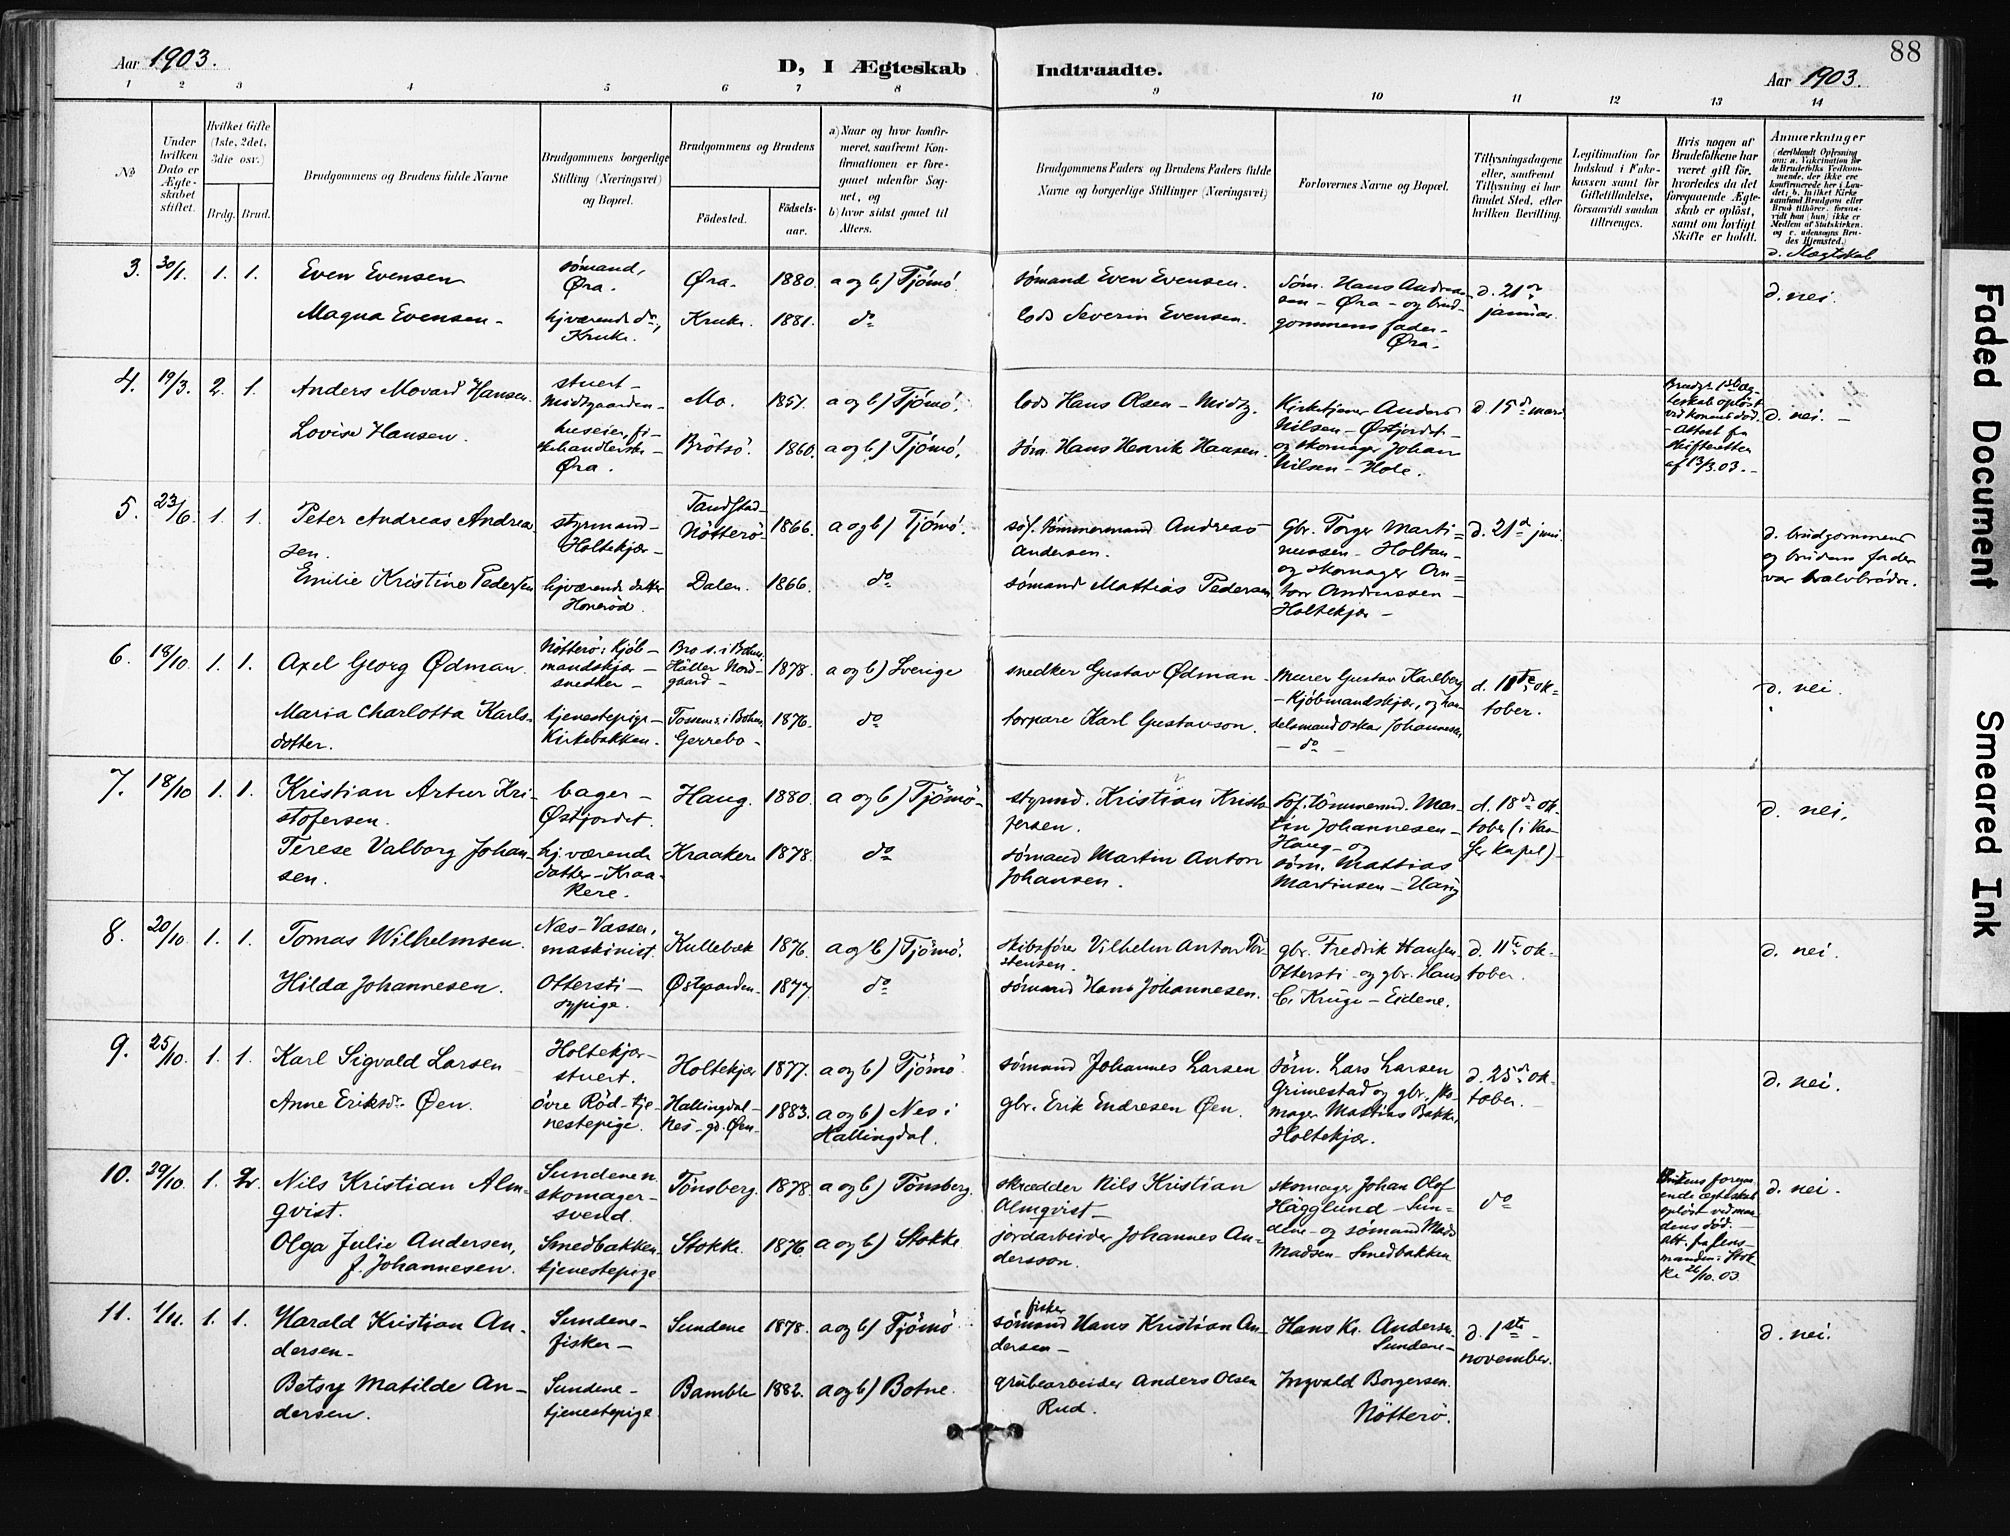 Aar 1903.
D, I Ægteskab Indtraadte.
88
Aar 1903.
1 2 3 4 5 6 7 8 9 10 11 12 13 14
No
Under hvilken Dato er Ægteskabet stiftet.
Hvilket Gifte (1ste, 2det, 3die osv.)
Brdg. Brud.
Brudgommens og Brudens fulde Navne
Brudgommens borgerlige Stilling (Næringsvei) og Bopæl.
Brudgommens og Brudens
Födested.
Födsels-aar.
a) Naar og hvor konfirmeret, saafremt Konfirmationen er foregaaet udenfor Sognet, og
b) hvor sidst gaaet til Alters.
Brudgommens Faders og Brudens Faders fulde Navne og borgerlige Stillinger (Næringsvei)
Forlovernes Navne og Bopæl.
Tillysningsdagene eller, saafremt Tillysning ei har fundet Sted, efter hvilken Bevilling.
Legitimation for Indskud i Enkekassen samt for Giftetilladelse, forsaavidt saadan tiltrænges.
Hvis nogen af Brudefolkene har været gift för, hvorledes da det foregaaende Ægteskab er oplöst, samt om lovligt Skifte er holdt.
Anmærkninger
d. Slægtskab
3. 30/1. 1. 1.
Even Evensen
sømand, Øra.
Øra. 1880. a og b) Tjømö.
sømand Even Evensen.
Søm. Hans Andreassen – Øra – og brudgommens fader – Øra.
d. 21de januar.
d. nei.
Magna Evensen –
hjværende dr., Kruke.
Kruke. 1881. do
lods Severin Evensen.
4. 19/3. 2. 1.
Anders Movard Hansen.
stuert – Midtgaarden –
Mo. 1857. a og b) Tjömö.
lods Hans Olsen – Midtg.
Kirketjener Anders Nilsen – Østjordet – og skomager Johan Nilsen – Hole.
d. 15de mars
Brudg. 1ste ægteskab opløst ved konens død. – Attest fra skifteretten af 13/3 03. –
d. nei –
Lovise Hansen.
huseier, fiskehandlerske – Øra.
Brötsö. 1860. a og b) Tjömö.
søm. Hans Henrik Hansen.
5. 23/6. 1. 1.
Peter Andreas Andreassen.
styrmand – Holtekjær –
Nötterö. 1866. a og b) Tjömö.
tømmermand Andreas Andersen.
Gbr. Torger Martinussen – Holtan – og skomager Anton Andreassen – Holtekjær –
d. 21de juni.
d. brudgommens og brudens fader var halvbrødre.
Emilie Kristine Pedersen
hjværende datter Honerød.
Dalen. 1866. do
sømand Mathias Pedersen
6. 18/10. 1. 1.
Axel Georg Ødman.
Nötterö: Kjöbmandskjær – snedker –
Bro s. i Bohus. Håller Nordgaard –
1878. a og b) Sverige
snedker Gustav Ødman –
Murer Gustav Karlberg – Kjöbmandskjær, og handelsmand Oskar Johannesen – do –
d. 11te oktober.
d. nei.
Maria Charlotta Karlsdotter.
tjenestepige – Kirkebakken.
Tossene s. i Bohus. Gerrebo –
1876. do
torpare Karl Gustavson.
7. 18/10 1. 1.
Kristian Artur Kristofersen.
bager – Østjordet.
Haug. 1880. a og b) Tjömö –
styrmd. Kristian Kristofersen.
Søf. tömmermd. Martin Johannesen – Haug – og søm. Mattias Martinsen – Haug
d. 18de oktober (i Vasser kapel) –
d. nei.
Terese Valborg Johansen.
hj. værende datter – Kraakere.
Kraakere 1878. do
sømand Martin Anton Johansen.
8. 20/10. 1. 1.
Tomas Wilhelmsen.
Næs – Vasser, maskinist.
Kullebæk 1876. a og b) Tjömö.
skibsfører Vilhelm Anton Torstensen.
gbr. Fredrik Hansen Ottersti – og gbr. Hans C. Kruge – Eidene.
d. 11te oktober.
d. nei.
Hilda Johannesen.
Ottersti – sypige.
Østgaarden. 1877. do
sømand Hans Johannesen.
9. 25/10. 1. 1.
Karl Sigvald Larsen
Holtekjær – stuert.
Holtekjær 1877. a og b) Tjömö.
sømand Johannes Larsen
søm. Lars Larsen Grimestad og gbr. skomager Mattias Bakke, Holtekjær.
d. 25de oktober. –
d. nei.
Anne Eriksdr. Øen.
övre Röd – tjenestepige.
Hallingdal – Nes – gd. Øen –
1883. a og b) Nes i Hallingdal.
gbr. Erik Endresen Øen.
10. 29/10. 1. 2.
Nils Kristian Almqvist.
Sundene n. skomagersvend.
Tönsberg. 1878. a og b) Tönsberg.
skrædder Nils Kristian Almqvist –
skomager Johan Olof Hägglund – Sundene – og sømand Mads Madsen – Smedbakken
do
Brudens foregaaende ægteskab opløst ved mandens død. – Att. fra lensmanden i Stokke 26/10. 03.
d. nei.
Olga Julie Andersen, f. Johannesen.
Smedbakken tjenestepige
Stokke. 1876. a og b) Stokke
jordarbeider Johannes Andersson.
11. 1/11. 1. 1.
Harald Kristian Andersen –
Sundene – fisker –
Sundene 1878. a og b) Tjömö
fisker
sømand Hans Kristian Andersen –
Hans Kr. Andersen. Sundene –
d. 1ste november.
d. nei.
Betsy Matilde Andersen.
Sundene – tjenestepige
Bamble 1882. a og b) Botne.
grubearbeider Anders Olsen Rud.
Ingvald Borgersen. Nötterö.
Faded Document
Smeared Ink